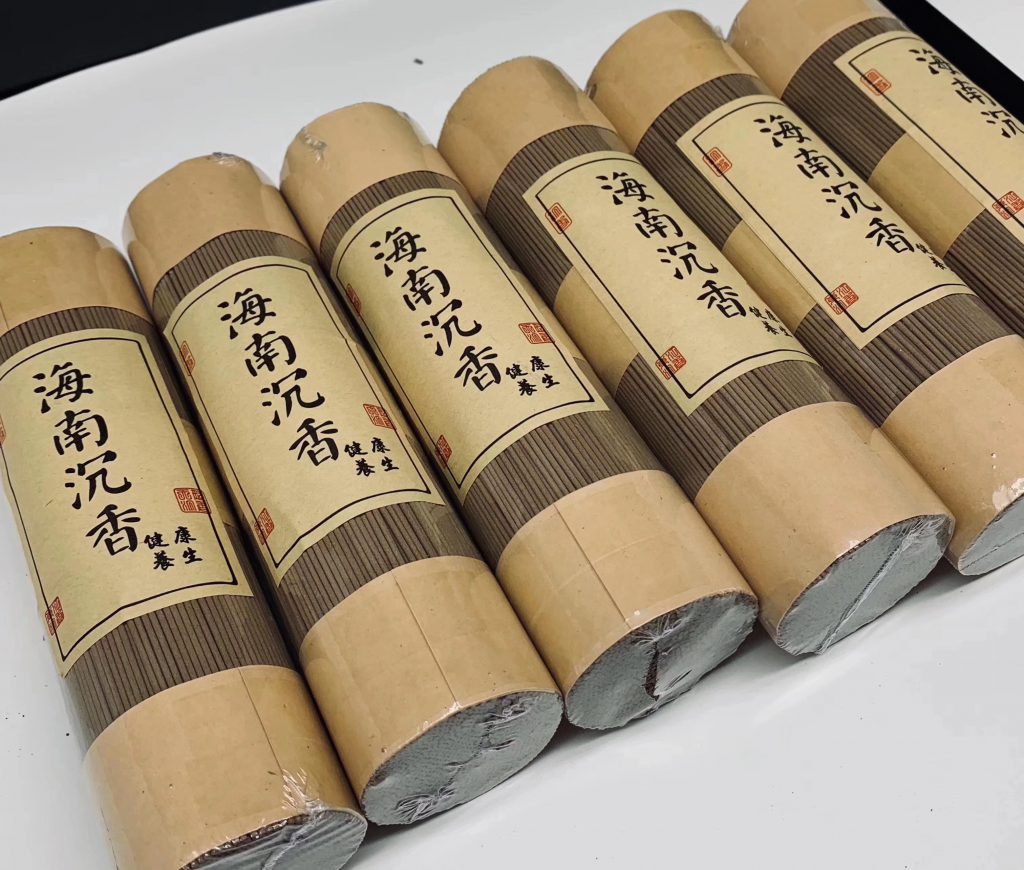 海南沉香
健康
養生
海南沉香
健康
養生
海南沉香
健康
養生
海南沉香
健
養
海南沉香
健
海南沉